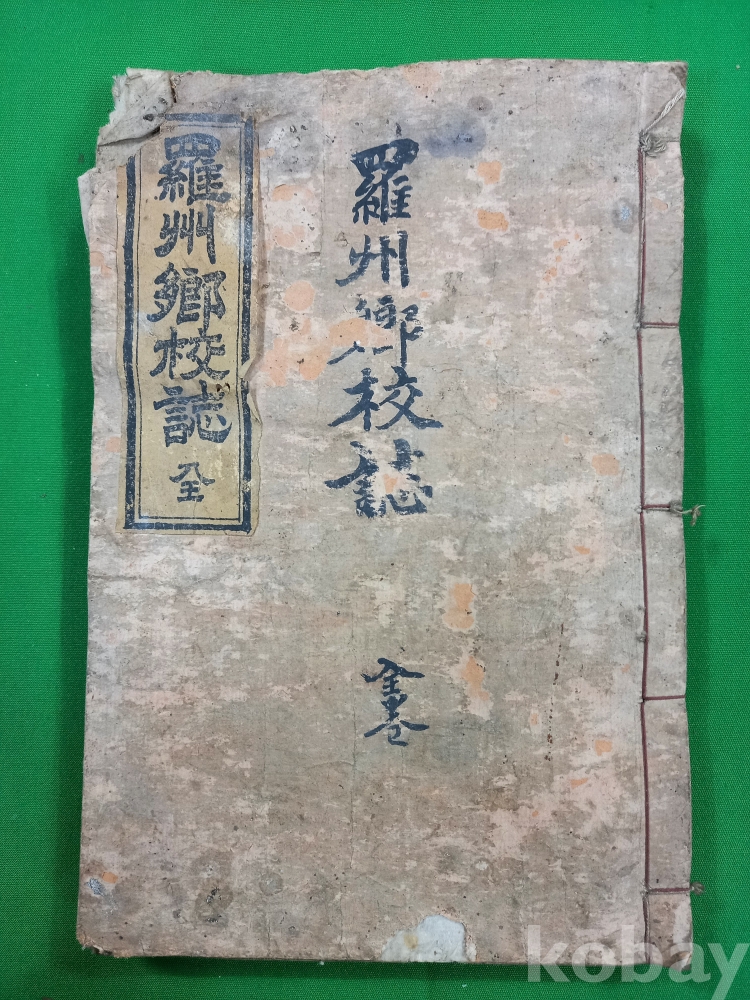 羅州鄕校誌
全卷
羅州鄕校誌 全
kobay